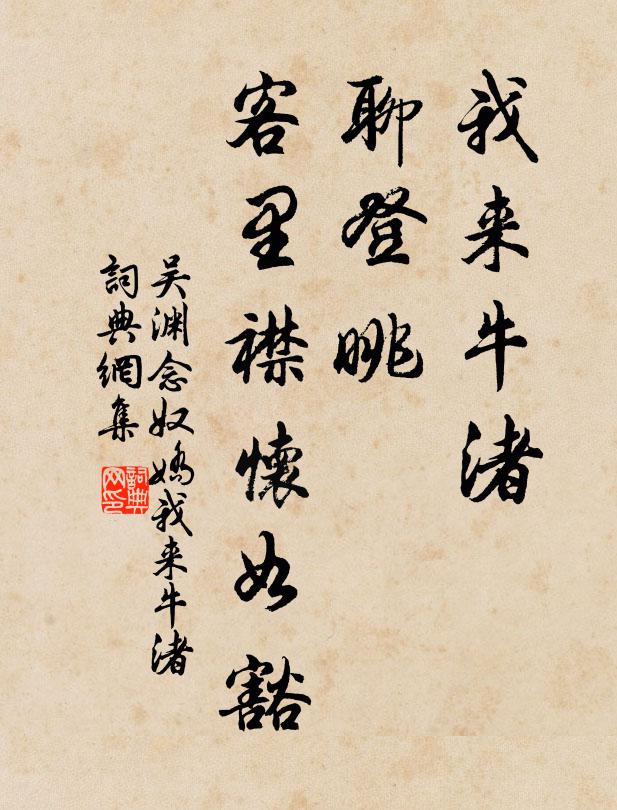 我来牛渚
聊登眺
客里襟懷如豁
吴渊念奴嬌我来牛渚
詞典網集
詞典网印